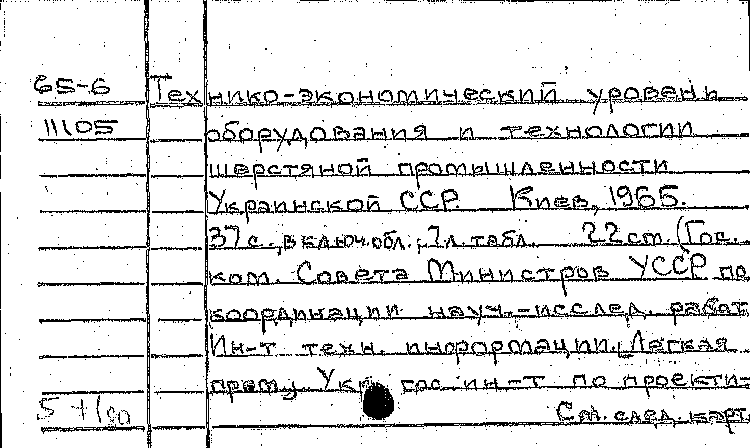 65-6 Технико-экономический уровень
11105 оборудования и технологии
шерстяной промышленности
Украинской ССР. Киев, 1965.
37 с., включ. обл.; 7 л. табл. 22 см. (Гос.
ком. Совета Министров УССР по
координации науч.-исслед. работ
Ин-т техн. информации. Легкая
пром.) Укр. гос. ин-т по проекти-
См. след. карт.